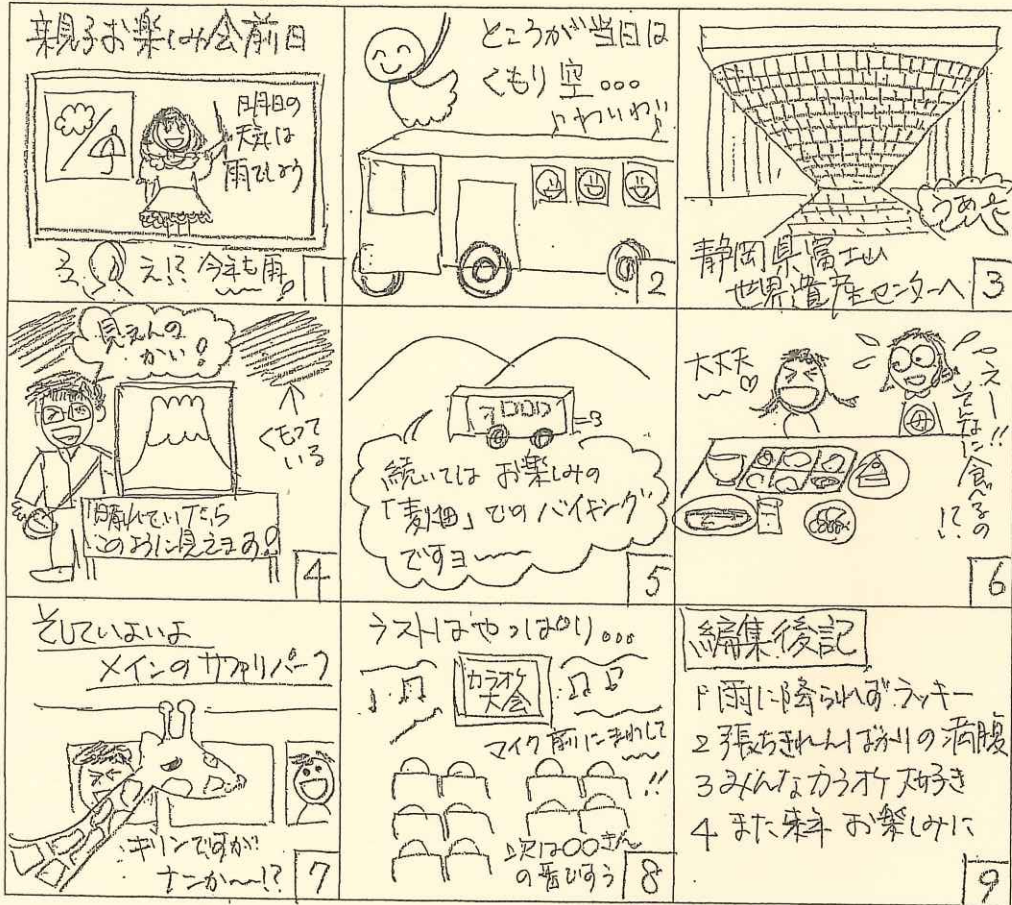 親子お楽しみ会前日
明日の
天気は
雨でしょう
え!? 今年も雨
1
ところが当日は
くもり空…
わいわい
2
うめ~
静岡県富士山
世界遺産センターへ
3
見えんの
かい!
くもって
いる
晴れていたら
このように見えます!
4
続いては お楽しみの
「麦畑」でのバイキング
ですョ~~
5
大丈夫♡
えー!!
そんなに食べるの
!?
母
6
そしていよいよ
メインのサファリパーク
キリンですが
ナンか~!?
7
ラストはやっぱり…
カラオケ
大会
マイク前にまわして
!!
次は〇〇さん
の番ですよう
8
編集後記
1 雨に降られずラッキー
2 張ちきれんばかりの満腹
3 みんなカラオケ大好き
4 また来年 お楽しみに
9